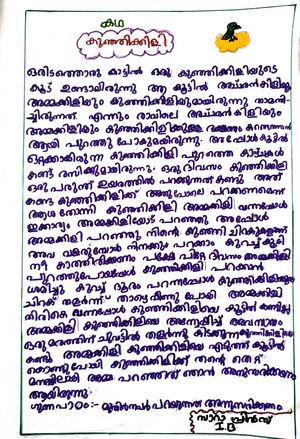 കഥ
കുഞ്ഞിക്കിളി
ഒരിടത്തൊരു കാട്ടിൽ ഒരു കുഞ്ഞിക്കിളിയുടെ
കൂട് ഉണ്ടായിരുന്നു ആ കൂട്ടിൽ അച്ഛൻകിളിയും
അമ്മക്കിളിയും കുഞ്ഞിക്കിളിയുമായിരുന്നു താമസി-
ച്ചിരുന്നത്. എന്നും രാവിലെ അച്ഛൻകിളിയും
അമ്മക്കിളിയും കുഞ്ഞിക്കിളിക്കുള്ള ഭക്ഷണം
ആയി പുറത്തു പോകുമായിരുന്നു. അപ്പോൾ കൂട്ടിൽ
ഒറ്റക്കാകുന്ന കുഞ്ഞിക്കിളി പുറത്തെ കാഴ്ചകൾ
കണ്ട് രസിക്കുമായിരുന്നു. ഒരു ദിവസം കുഞ്ഞിക്കിളി
ഒരു പരുന്ത് ഉയരത്തിൽ പറക്കുന്നത് കണ്ടു. അത്
കണ്ട കുഞ്ഞിക്കിളിക്ക് അതുപോലെ പറക്കണമെന്ന്
ആശ തോന്നി കുഞ്ഞിക്കിളി അമ്മക്കിളി വന്നപ്പോൾ
ഇക്കാര്യം അമ്മക്കിളിയോട് പറഞ്ഞു അപ്പോൾ
അമ്മക്കിളി പറഞ്ഞു നിന്റെ കുഞ്ഞി ചിറകുകളല്ലേ
അവ വളരുമ്പോൾ നിനക്കും പറക്കാം. കുറച്ച് കൂടി
നീ കാത്തിരിക്കണം പക്ഷേ പിറ്റേ ദിവസം അമ്മക്കിളി
പുറത്തുപോയപ്പോൾ കുഞ്ഞിക്കിളി പറക്കാൻ
ശ്രമിച്ചു കുറച്ച് ദൂരം പറന്നപ്പോൾ കുഞ്ഞിക്കിളിയുടെ
ചിറക് തളർന്ന് താഴെ വീണു പോയി. അമ്മക്കിളി
വന്നപ്പോൾ കുഞ്ഞിക്കിളിയെ കൂട്ടിൽ കണ്ടില്ല
അമ്മക്കിളി കുഞ്ഞിക്കിളിയെ അന്വേഷിച്ച് അവസാനം
ഒരു മരത്തിന് ചുവട്ടിൽ തളർന്ന് കിടക്കുന്ന കുഞ്ഞിക്കിളിയെ
കണ്ടു അമ്മക്കിളി കുഞ്ഞിക്കിളിയെ എടുത്ത് കൂട്ടിൽ
കൊണ്ടുപോയി കുഞ്ഞിക്കിളിക്ക് തന്റെ തെറ്റ്
മനസ്സിലായി അമ്മ പറഞ്ഞത് ഞാൻ അനുസരിക്കേണ്ട
ആയിരുന്നു
ഗുണപാഠം:- മുതിർന്നവർ പറയുന്നത് അനുസരിക്കണം
സാറാ പ്രിൻസ്
I.B